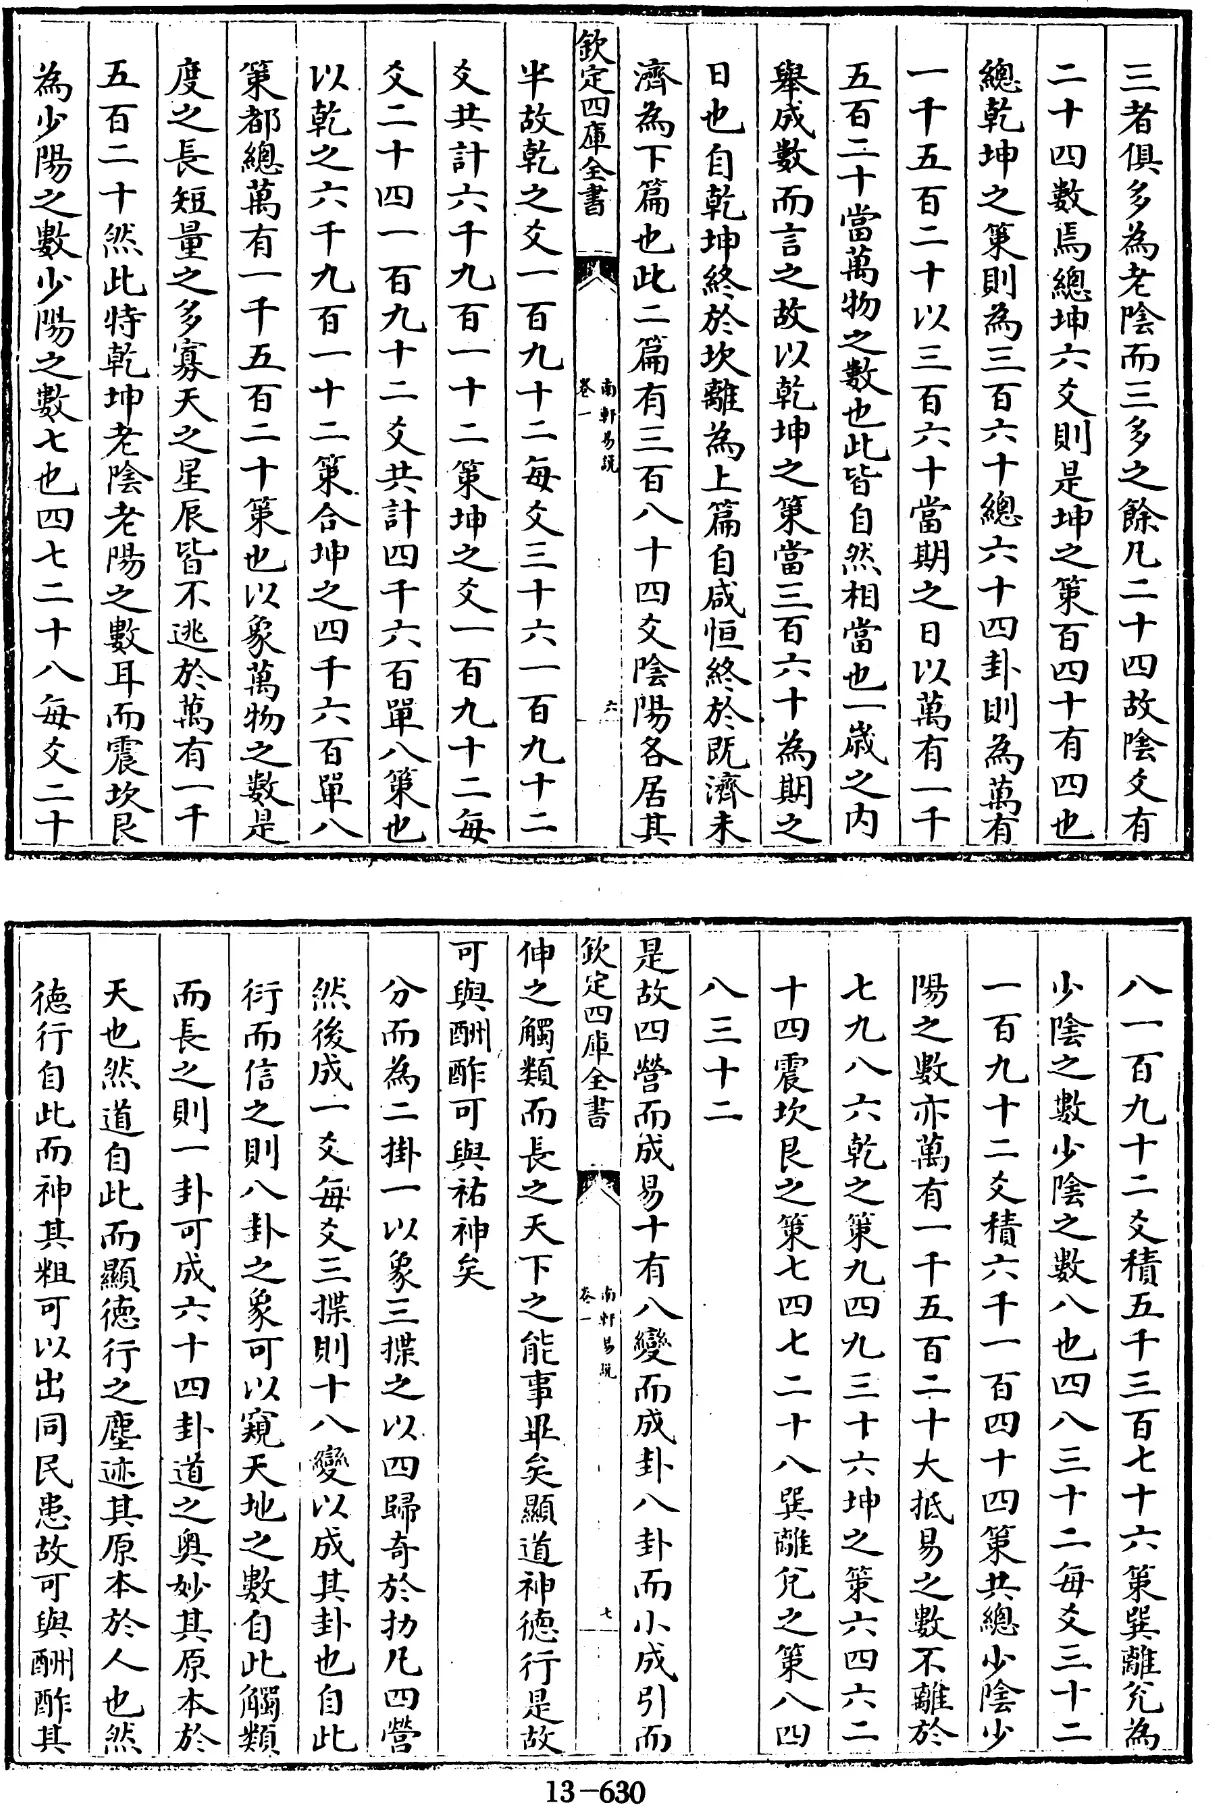 三者俱多為老陰而三多之餘凡二十四故陰爻有
二十四數焉總坤六爻則是坤之策百四十有四也
總乾坤之策則為三百六十總六十四卦則為萬有
一千五百二十以三百六十當期之日以萬有一千
五百二十當萬物之數也此皆自然相當也一歲之內
舉成數而言之故以乾坤之策當三百六十為期之
日也自乾坤終於坎離為上篇自咸恒終於既濟未
濟為下篇也此二篇有三百八十四爻陰陽各居其
欽定四庫全書
南軒易說
卷一
六
半故乾之爻一百九十二每爻三十六一百九十二
爻共計六千九百一十二策坤之爻一百九十二每
爻二十四一百九十二爻共計四千六百單八策也
以乾之六千九百一十二策合坤之四千六百單八
策都總萬有一千五百二十策也以象萬物之數是
度之長短量之多寡天之星辰皆不逃於萬有一千
五百二十然此特乾坤老陰老陽之數耳而震坎艮
為少陽之數少陽之數七也四七二十八每爻二十
八一百九十二爻積五千三百七十六策巽離兊為
少陰之數少陰之數八也四八三十二每爻三十二
一百九十二爻積六千一百四十四策共總少陰少
陽之數亦萬有一千五百二十大抵易之數不離於
七九八六乾之策九四九三十六坤之策六四六二
十四震坎艮之策七四七二十八巽離兊之策八四
八三十二
是故四營而成易十有八變而成卦八卦而小成引而
欽定四庫全書
南軒易說
卷一
七
伸之觸類而長之天下之能事畢矣顯道神德行是故
可與酬酢可與祐神矣
分而為二掛一以象三揲之以四歸奇於扐凡四營
然後成一爻每爻三揲則十八變以成其卦也自此
衍而信之則八卦之象可以窺天地之數自此觸類
而長之則一卦可成六十四卦道之奧妙其原本於
天也然道自此而顯德行之塵迹其原本於人也然
德行自此而神其粗可以出同民患故可與酬酢其
13-630